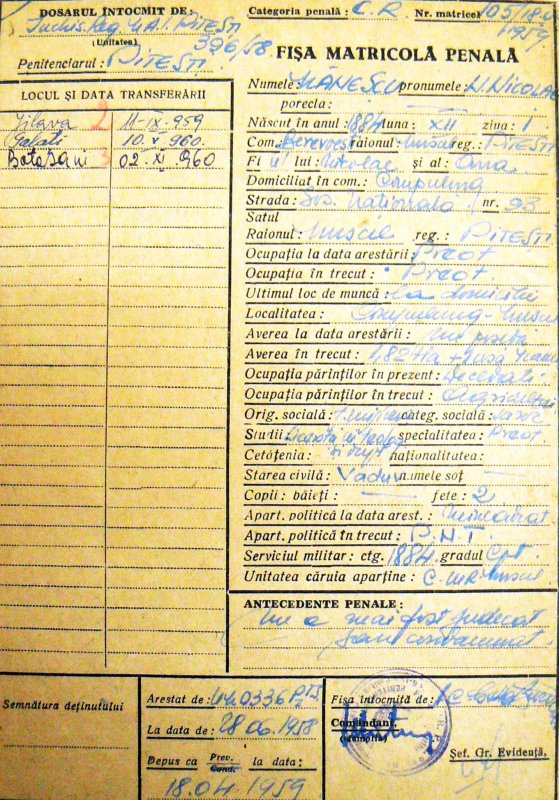 DOSARUL ÎNTOCMIT DE:
(Unitatea)
396/58
Penitenciarul: PITEȘTI
LOCUL ȘI DATA TRANSFERĂRII
Jilava 2 11-IX-959
Galati 10. V 960.
Botoșani 3 02. XI. 960
Categoria penală: C.R. Nr. matricol
1959
FIȘA MATRICOLĂ PENALĂ
Numele: MĂNESCU pronumele: N. NICOLAE
porecla: —
Născut în anul: 1884 luna: XII ziua: 1
Com. raionul: reg.: PITEȘTI
Fi ul lui: Nicolae și al: Ana
Domiciliat în com.: Câmpulung
Strada: Șos. Națională nr. 93
Satul
Raionul: Muscel reg.: PITEȘTI
Ocupația la data arestării: Preot
Ocupația în trecut: Preot.
Ultimul loc de muncă: La domiciliu
Localitatea: Câmpulung - Muscel
Averea la data arestării: Nu posedă
Averea în trecut: 1,82 Ha +
Ocupația părinților în prezent: Decedati
Ocupația părinților în trecut: Agricultori
Orig. socială: categ. socială:
Studii: specialitatea: Preot.
Cetățenia: naționalitatea:
Starea civilă: Văduv numele soț —
Copii: băieți: — fete: 2
Apart. politică la data arest.: Neîncadrat
Apart. politică în trecut: P.N.T.
Serviciul militar: ctg. 1884 gradul Cpt.
Unitatea căruia aparține: C.M.R. Muscel
ANTECEDENTE PENALE:
Nu a mai fost judecat
sau condamnat
Semnătura deținutului
Arestat de:
La data de: 28.06.1958
Depus ca Prev. Cond. la data:
18.04.1959
Fișa întocmită de:
Comandant,
(ștampila)
Șef. Gr. Evidență,